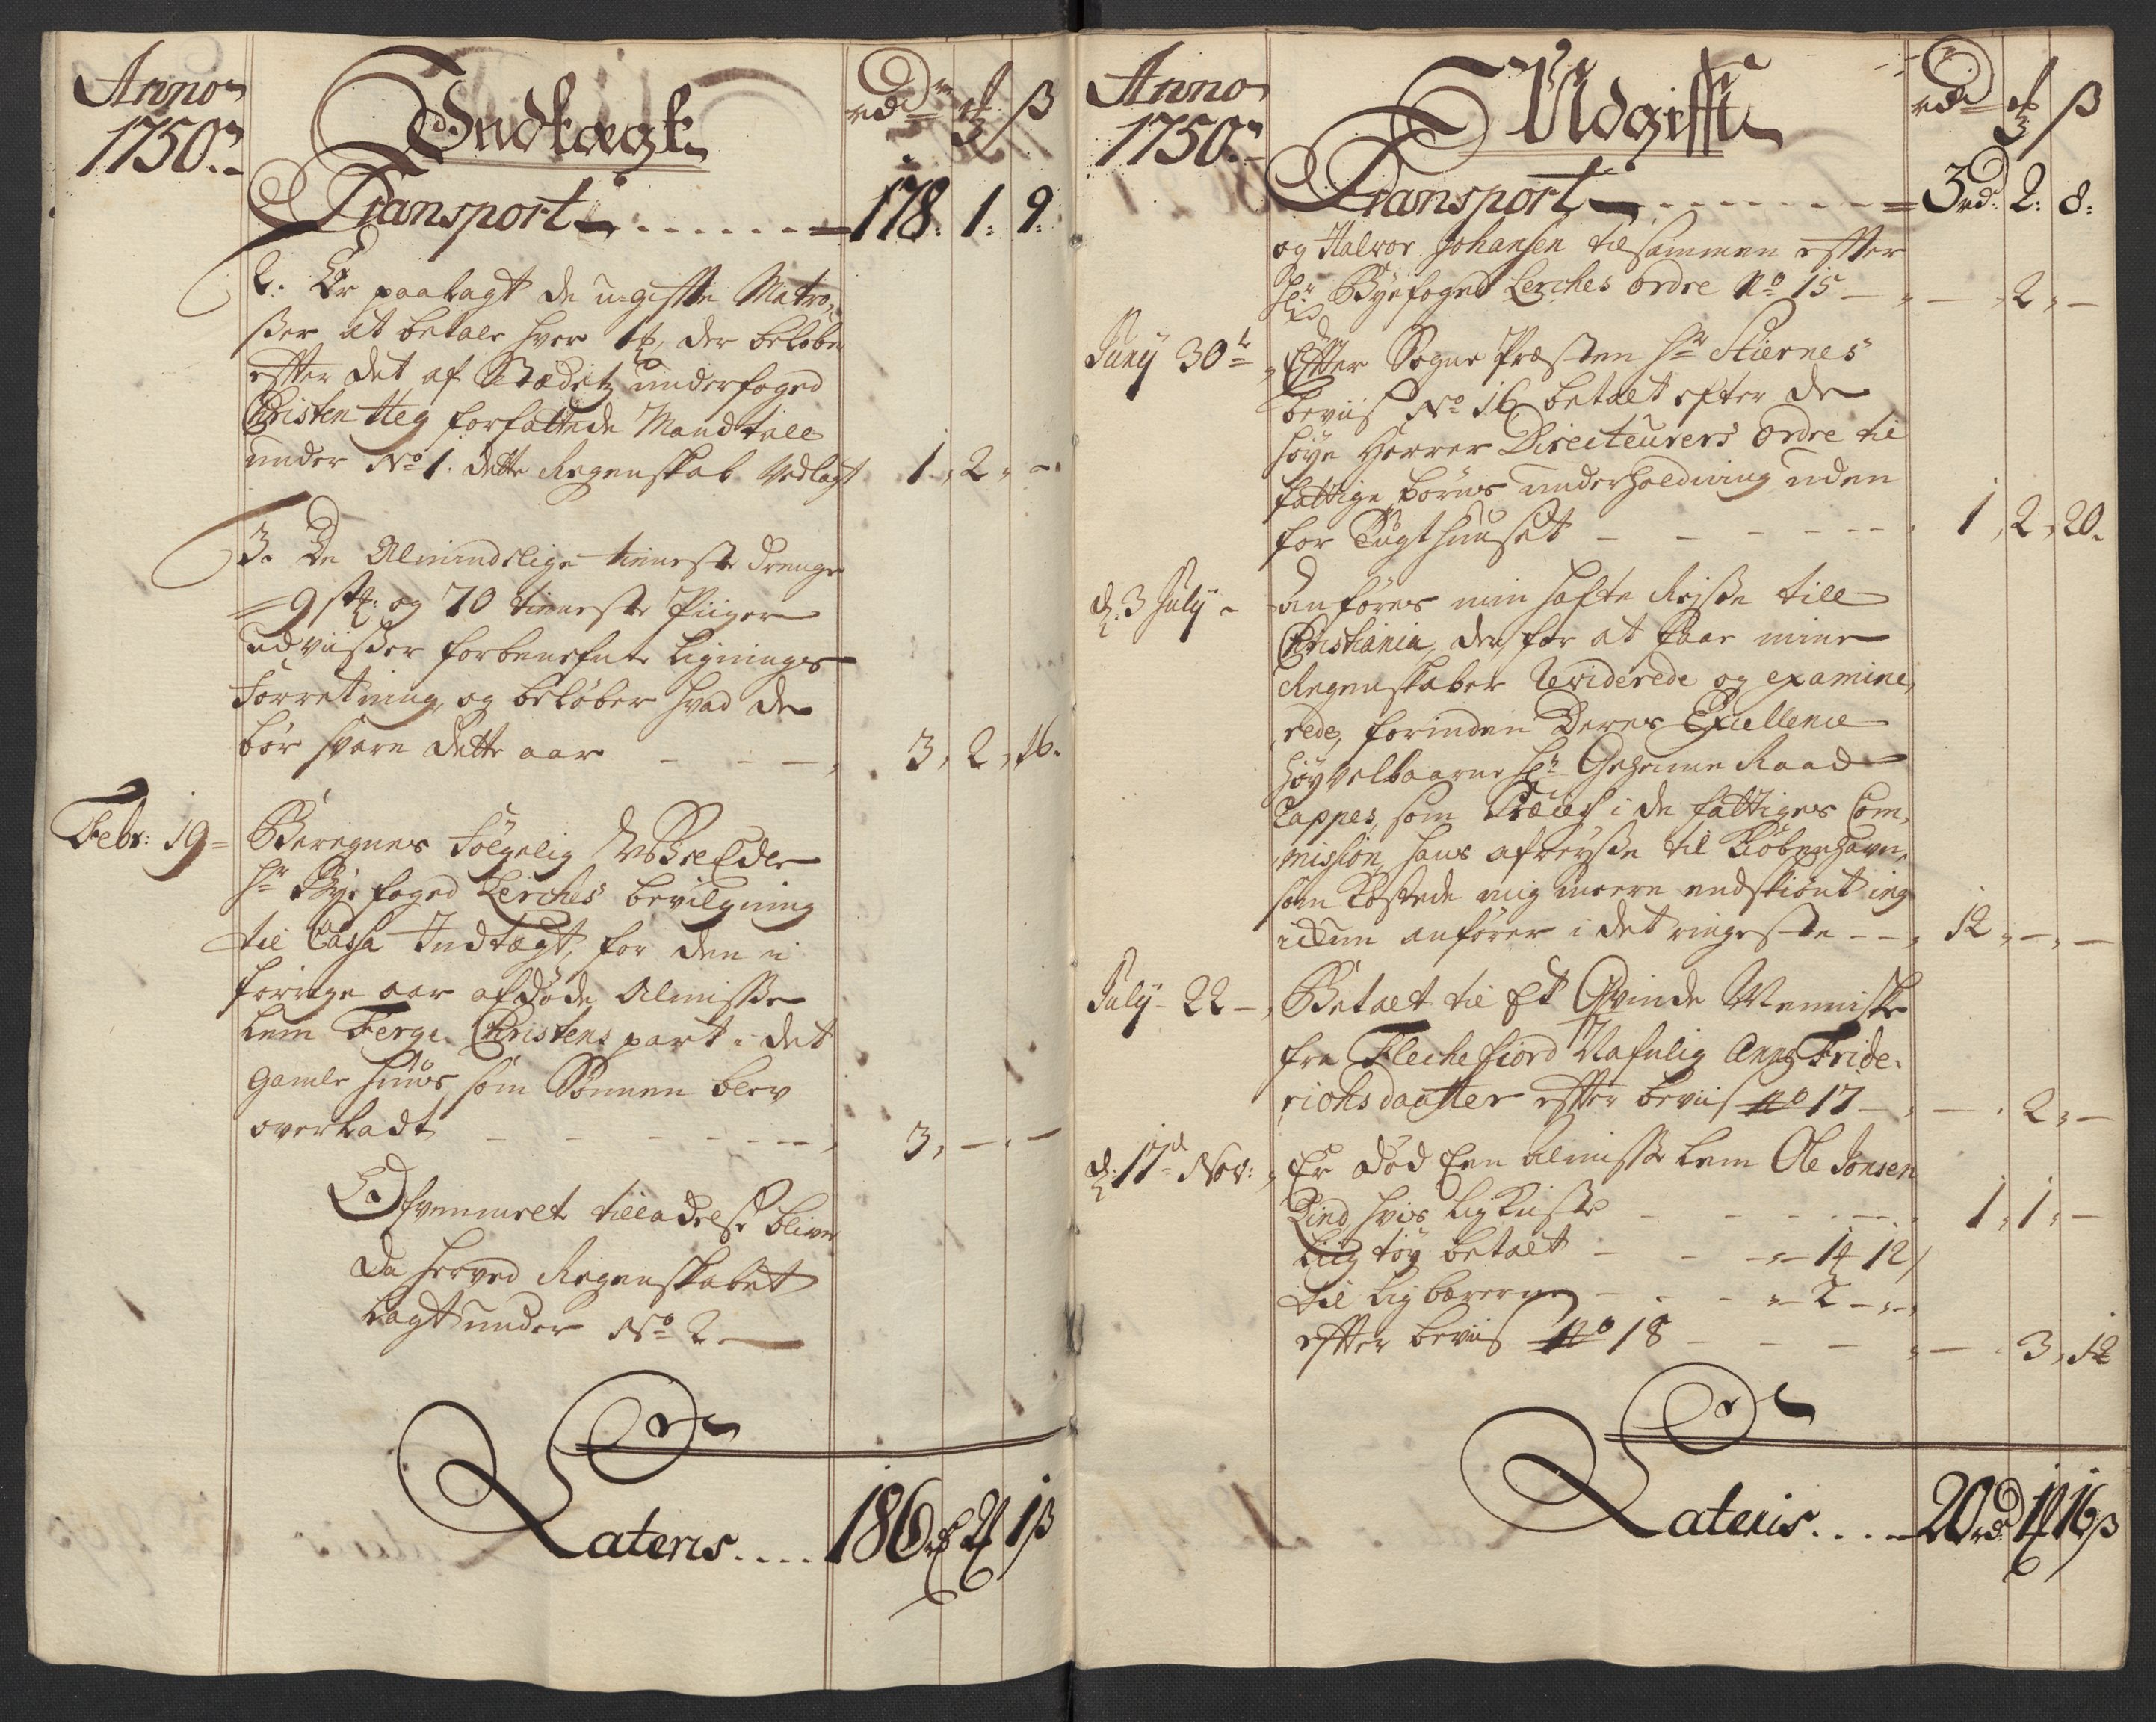 Anno
1750.
Indtægt
rdr ort ß
Transport 178. 1. 9.
2. Er paalagt de u-gifte Matro-
ßer at betale hver 1 ort, der beløber
efter det af Stædetz underfoged
Christen Heg forfattede Mandtall
under No 1. dette Regenskab Vedlagt 1, 2, -
3. De Almindelige tienneste drenge
9 stk: og 70 tienneste Piiger
udviißer forbenefnte Lignings
Forretning, og beløber hvad de
bør svare dette aar - - - 3, 2, 16.
Febr: 19 Beregnes følgelig Edle
Hr Bye foged Lerches bevilgning
til Cassa Indtægt, for den i
forrige aar afdøde Almisse
Lem Terge Christens part i det
gamle Huus, som Sønnen blev
overladt - - - 3, - -
tilladelse bliver
da herved Regenskabet
Lagt under No 2
Lateris.... 186 rd 2 ort 1 ß
Anno
1750.
Udgifft
rdr ort ß
Transport 3 rd. 2. 8.
og Halvor Johansen tilsammen efter
Hr Byefoged Lerches Ordre No 15 - - 2, -
Juny 30te Efter Sogne Præsten Hr Stiernes
beviis No 16 betalt efter de
høye Herrer Directeurers Ordre til
fattige børns underholdning uden
for Tugthuuset - - - 1, 2, 20.
d. 3 July anføres min hafte Reyse till
Christiania, der for at faae mine
Regenskaber Reviderede og examine-
rede, forinden Deres Excellence
Høyvelbaarne Hr Geheime Raad
Rappes, som Præces i de fattiges Com-
mission, hans afreyße til Kiøbenhavn,
som kostede mig meere endskiønt ieg
ickun anfører i det ringeste - - 12, -, -
July 22 Betalt til Et Qvinde Menniske
fra Fleche fiord Nafnlig Anne Fride-
richsdaatter efter beviis No 17 - - 2, -
d. 17d Nov: Er død Een almisse Lem Ole Jonsen
Lind, hvis Lig Kiste - - - 1, 1, -
Liig tøy betalt - - 1 ort 12
til Ligbærerne - - 2 -
efter beviis No 18 - - - 3, 12
Lateris.... 20 rd 1 ort 16 ß